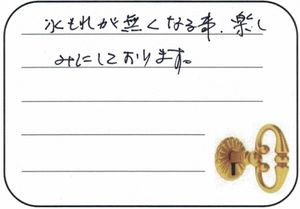 水もれが無くなる事、楽し
みにしております。